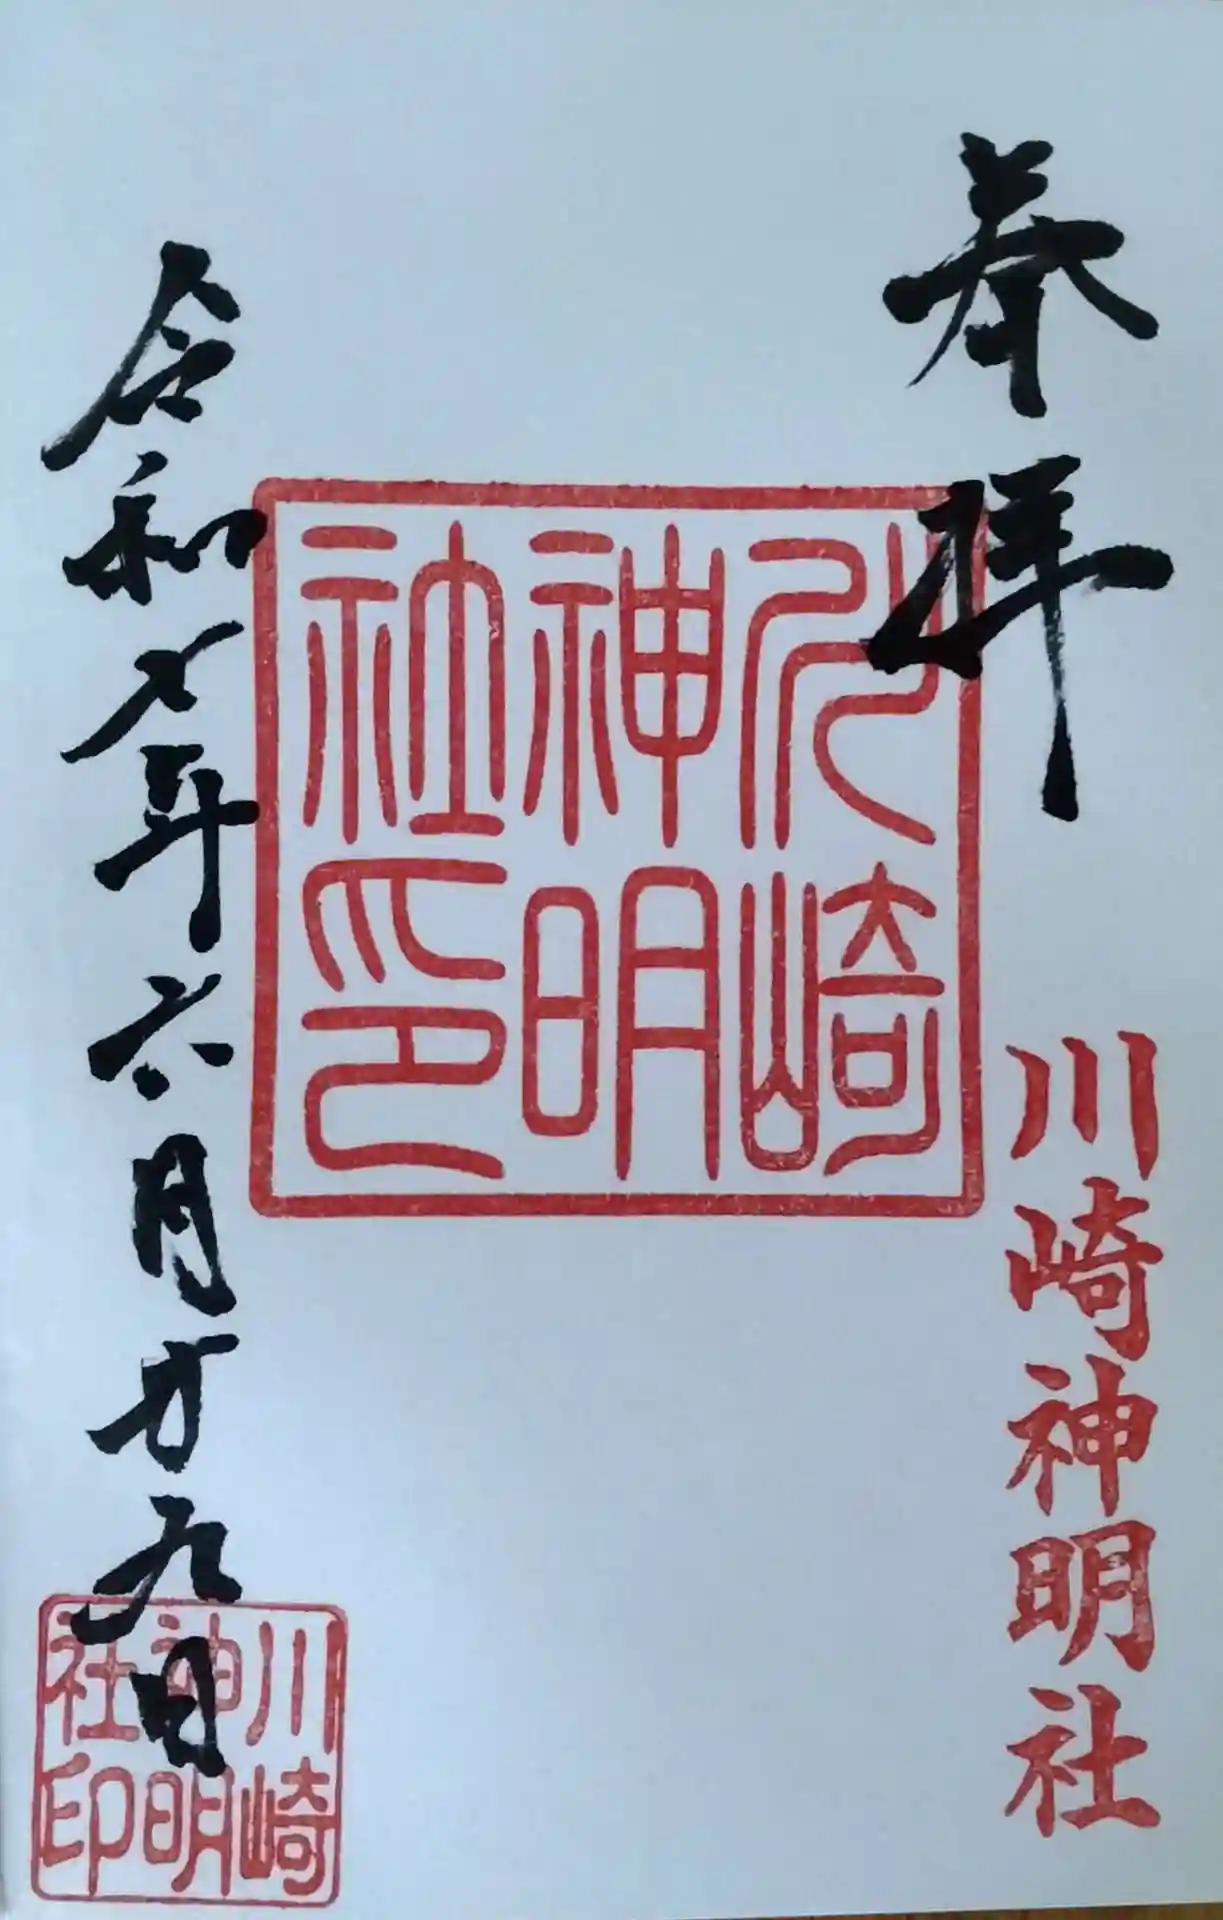 奉拝
川崎神明社
川崎
神明
社印
令和七年六月二十九日
川崎
神明
社印